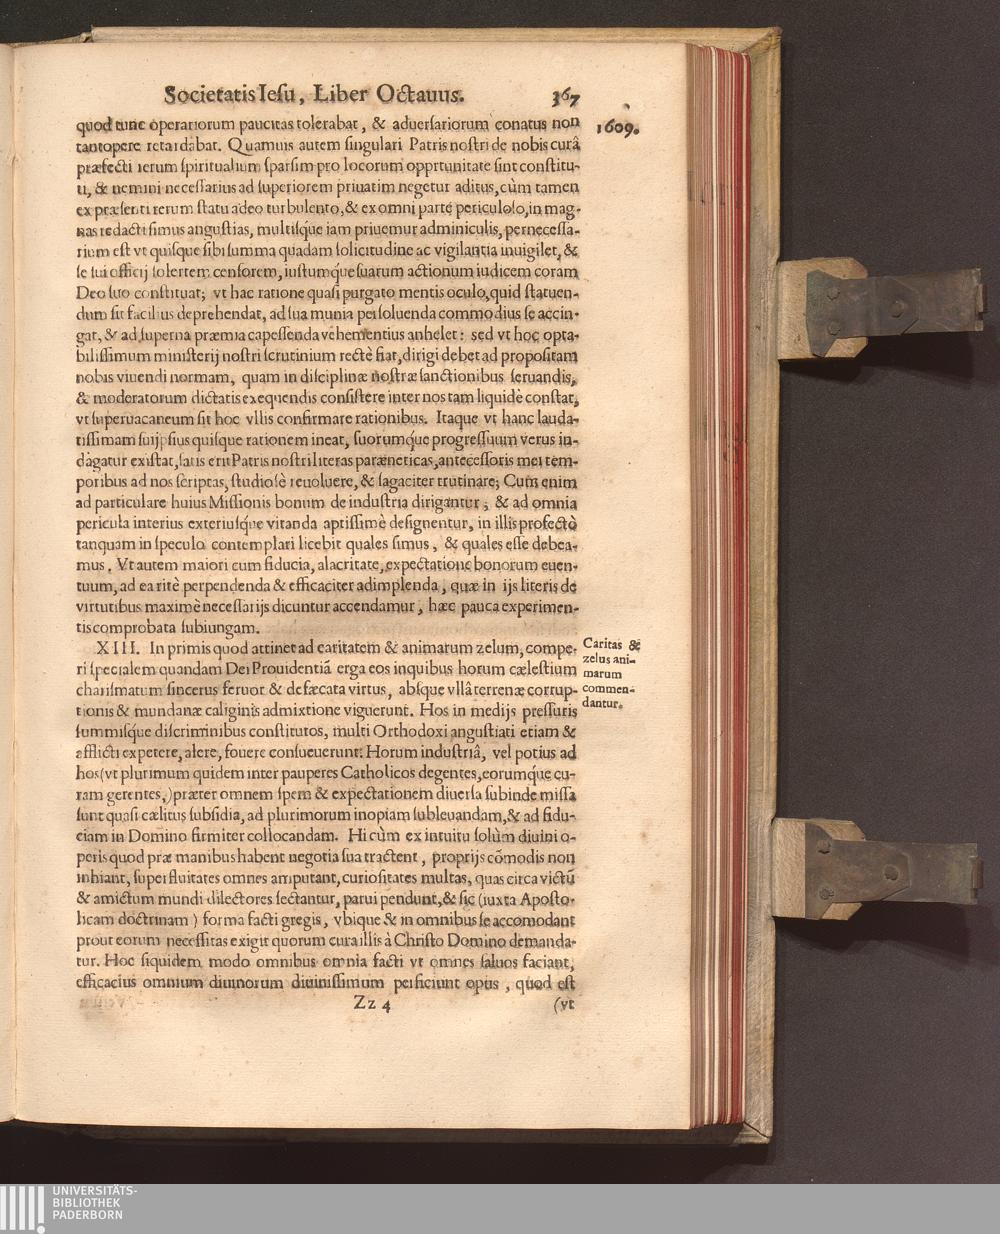 Societatis Iesu, Liber Octauus. 367
1609.
quod tunc operariorum paucitas tolerabat, & aduersariorum conatus non
tantopere retardabat. Quamuis autem singulari Patris nostri de nobis curâ
præfecti rerum spiritualium sparsim pro locorum opprtunitate sint constitu-
ti, & nemini necessarius ad superiorem priuatim negetur aditus, cùm tamen
ex præsenti rerum statu adeo turbulento, & ex omni parte periculoso, in mag-
nas redacti simus angustias, multisq́ue iam priuemur adminiculis, pernecessa-
rium est vt quisque sibi summa quadam solicitudine ac vigilantia inuigilet, &
se sui officij solertem censorem, iustumq́ue suarum actionum iudicem coram
Deo suo constituat; vt hac ratione quasi purgato mentis oculo, quid statuen-
dum sit facilius deprehendat, ad sua munia persoluenda commodius se accin-
gat, & ad superna præmia capessenda vehementius anhelet: sed vt hoc opta-
bilissimum ministerij nostri scrutinium rectè fiat, dirigi debet ad propositam
nobis viuendi normam, quam in disciplinæ nostræ sanctionibus seruandis,
& moderatorum dictatis exequendis consistere inter nos tam liquidè constat,
vt superuacaneum sit hoc vllis confirmare rationibus. Itaque vt hanc lauda-
tissimam sui ipsius quisque rationem ineat, suorumq́ue progressuum verus in-
dagatur existat, satis erit Patris nostri literas paræneticas, antecessoris mei tem-
poribus ad nos scriptas, studiosè reuoluere, & sagaciter trutinare; Cum enim
ad particulare huius Missionis bonum de industria dirigantur; & ad omnia
pericula interius exteriusq́ue vitanda aptissimè designentur, in illis profectò
tanquam in speculo contemplari licebit quales simus, & quales esse debea-
mus. Vt autem maiori cum fiducia, alacritate, expectatione bonorum euen-
tuum, ad ea ritè perpendenda & efficaciter adimplenda, quæ in ijs literis de
virtutibus maximè necessarijs dicuntur accendamur, hæc pauca experimen-
tis comprobata subiungam.
XIII. In primis quod attinet ad caritatem & animarum zelum, compe-
ri specialem quandam Dei Prouidentiā erga eos in quibus horum cælestium
charismatum sincerus feruor & defæcata virtus, absque vllâ terrenæ corrup-
tionis & mundanæ caliginis admixtione viguerunt. Hos in medijs pressuris
summisq́ue discriminibus constitutos, multi Orthodoxi angustiati etiam &
afflicti expetere, alere, fouere consueuerunt: Horum industriâ, vel potius ad
hos (vt plurimum quidem inter pauperes Catholicos degentes, eorumq́ue cu-
ram gerentes,) præter omnem spem & expectationem diuersa subinde missa
sunt quasi cælitus subsidia, ad plurimorum inopiam subleuandam, & ad fidu-
ciam in Domino firmiter collocandam. Hi cùm ex intuitu solùm diuini o-
peris quod præ manibus habent negotia sua tractent, proprijs cōmodis non
inhiant, superfluitates omnes amputant, curiositates multas, quas circa victū
& amictum mundi dilectores sectantur, parui pendunt, & sic (iuxta Aposto-
licam doctrinam) forma facti gregis, vbique & in omnibus se accomodant
prout eorum necessitas exigit quorum cura illis à Christo Domino demanda-
tur. Hoc siquidem modo omnibus omnia facti vt omnes saluos faciant,
efficacius omnium diuinorum diuinissimum perficiunt opus, quod est
Zz 4 (vt
Caritas &
zelus ani-
marum
commen-
dantur.
UNIVERSITÄTS-
BIBLIOTHEK
PADERBORN